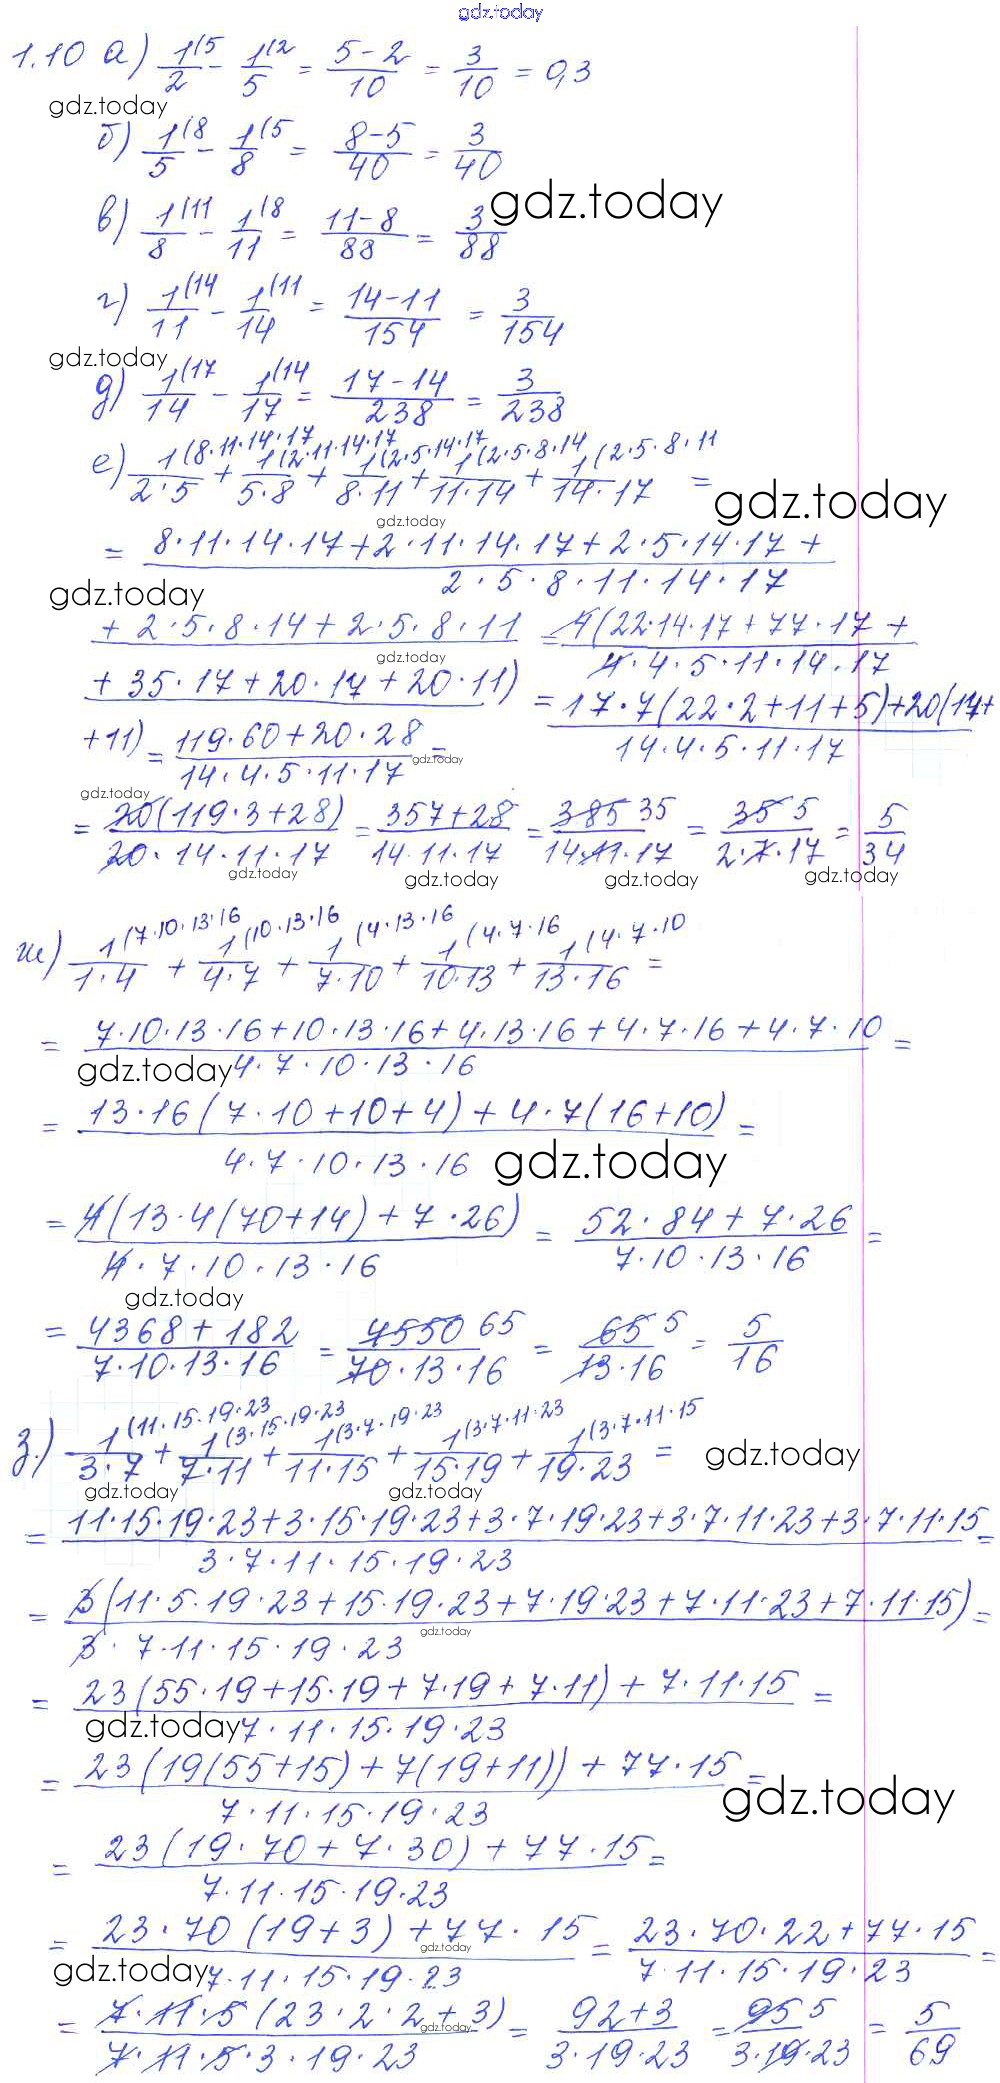 gdz.today
1.10 а) 1(5/2 - 1(2/5 = (5-2)/10 = 3/10 = 0,3
gdz.today
б) 1(8/5 - 1(5/8 = (8-5)/40 = 3/40
в) 1(11/8 - 1(8/11 = (11-8)/88 = 3/88
gdz.today
г) 1(14/11 - 1(11/14 = (14-11)/154 = 3/154
gdz.today
д) 1(17/14 - 1(14/17 = (17-14)/238 = 3/238
е) 1(8·11·14·17/2·5 + 1(2·11·14·17/5·8 + 1(2·5·14·17/8·11 + 1(2·5·8·14/11·14 + 1(2·5·8·11/14·17 =
gdz.today
gdz.today
= 8·11·14·17+2·11·14·17+2·5·14·17+ / 2·5·8·11·14·17
gdz.today
+2·5·8·14+2·5·8·11 = 4(22·14·17+77·17+ / 4·4·5·11·14·17
gdz.today
+35·17+20·17+20·11) = 17·7(22·2+11+5)+20(17+ / 14·4·5·11·17
+11) = (119·60+20·28)/(14·4·5·11·17) =
gdz.today
gdz.today
= 20(119·3+28)/(20·14·11·17) = (357+28)/(14·11·17) = 385 35/(14·11·17) = 35 5/(2·7·17) = 5/34
gdz.today gdz.today gdz.today gdz.today
ж) 1(7·10·13·16/1·4 + 1(10·13·16/4·7 + 1(4·13·16/7·10 + 1(4·7·16/10·13 + 1(4·7·10/13·16 =
= (7·10·13·16+10·13·16+4·13·16+4·7·16+4·7·10)/(4·7·10·13·16) =
gdz.today
= (13·16(7·10+10+4)+4·7(16+10))/(4·7·10·13·16) =
gdz.today
= 4(13·4(70+14)+7·26)/(4·7·10·13·16) = (52·84+7·26)/(7·10·13·16) =
gdz.today
= (4368+182)/(7·10·13·16) = 4550 65/(70·13·16) = 65 5/(13·16) = 5/16
з.) 1(11·15·19·23/3·7 + 1(3·15·19·23/7·11 + 1(3·7·19·23/11·15 + 1(3·7·11·23/15·19 + 1(3·7·11·15/19·23 =
gdz.today
gdz.today gdz.today
= (11·15·19·23+3·15·19·23+3·7·19·23+3·7·11·23+3·7·11·15)/(3·7·11·15·19·23) =
= 3(11·5·19·23+15·19·23+7·19·23+7·11·23+7·11·15)/(3·7·11·15·19·23) =
gdz.today
= (23(55·19+15·19+7·19+7·11)+7·11·15)/(7·11·15·19·23) =
gdz.today
= (23(19(55+15)+7(19+11))+77·15)/(7·11·15·19·23) =
gdz.today
= (23(19·70+7·30)+77·15)/(7·11·15·19·23) =
= (23·70(19+3)+77·15)/(7·11·15·19·23) = (23·70·22+77·15)/(7·11·15·19·23) =
gdz.today
gdz.today
= 7·11·5(23·2·2+3)/(7·11·5·3·19·23) = (92+3)/(3·19·23) = 95 5/(3·19·23) = 5/69
gdz.today